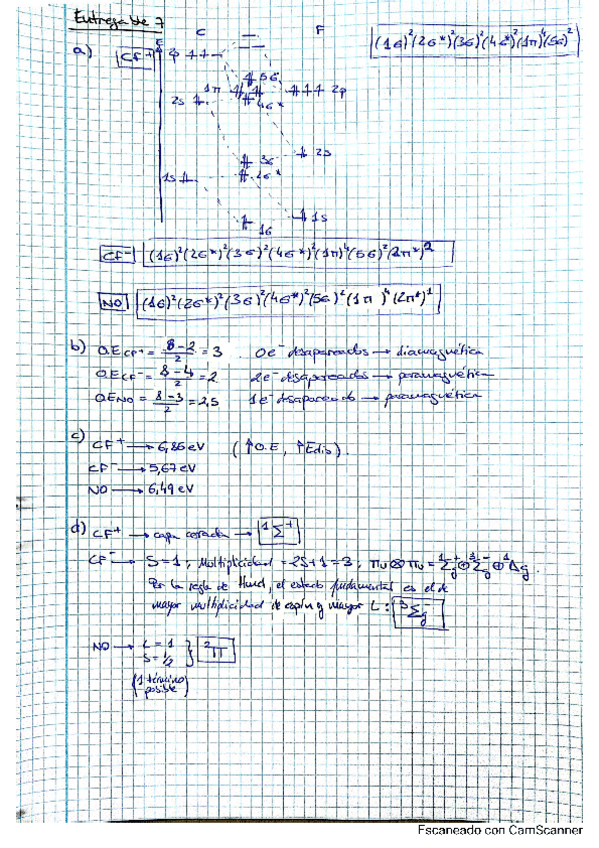 Entregable 7
C F
(1σ)²(2σ*)²(3σ)²(4σ*)²(1π)⁴(5σ)²
a) CF⁺ E 2p
5σ
1π 2p
2s 4σ*
2s
3σ
1s 2σ*
1s
1σ
CF⁻ (1σ)²(2σ*)²(3σ)²(4σ*)²(1π)⁴(5σ)²(2π*)²
NO (1σ)²(2σ*)²(3σ)²(4σ*)²(5σ)²(1π)⁴(2π*)¹
b) O.E CF⁺ = 8-2/2 = 3. 0e⁻ desapareados → diamagnética
O.E CF⁻ = 8-4/2 = 2 2e⁻ desapareados → paramagnética
O.E NO = 8-3/2 = 2,5 1e⁻ desapareado → paramagnética
c) CF⁺ → 6,86 eV (↑O.E, ↑Edis).
CF⁻ → 5,67 eV
NO → 6,49 eV
d) CF⁺ → capa cerrada → ¹Σ⁺
CF⁻ → S=1, Multiplicidad = 2S+1 = 3, πu⊗πu = ¹Σg⁺⊕³Σg⁻⊕¹Δg.
Por la regla de Hund, el estado fundamental es el de
mayor multiplicidad de espín y mayor L: ³Σg⁻
NO → L = 1
S = ½ } ²Π
(1 término
posible)
Escaneado con CamScanner